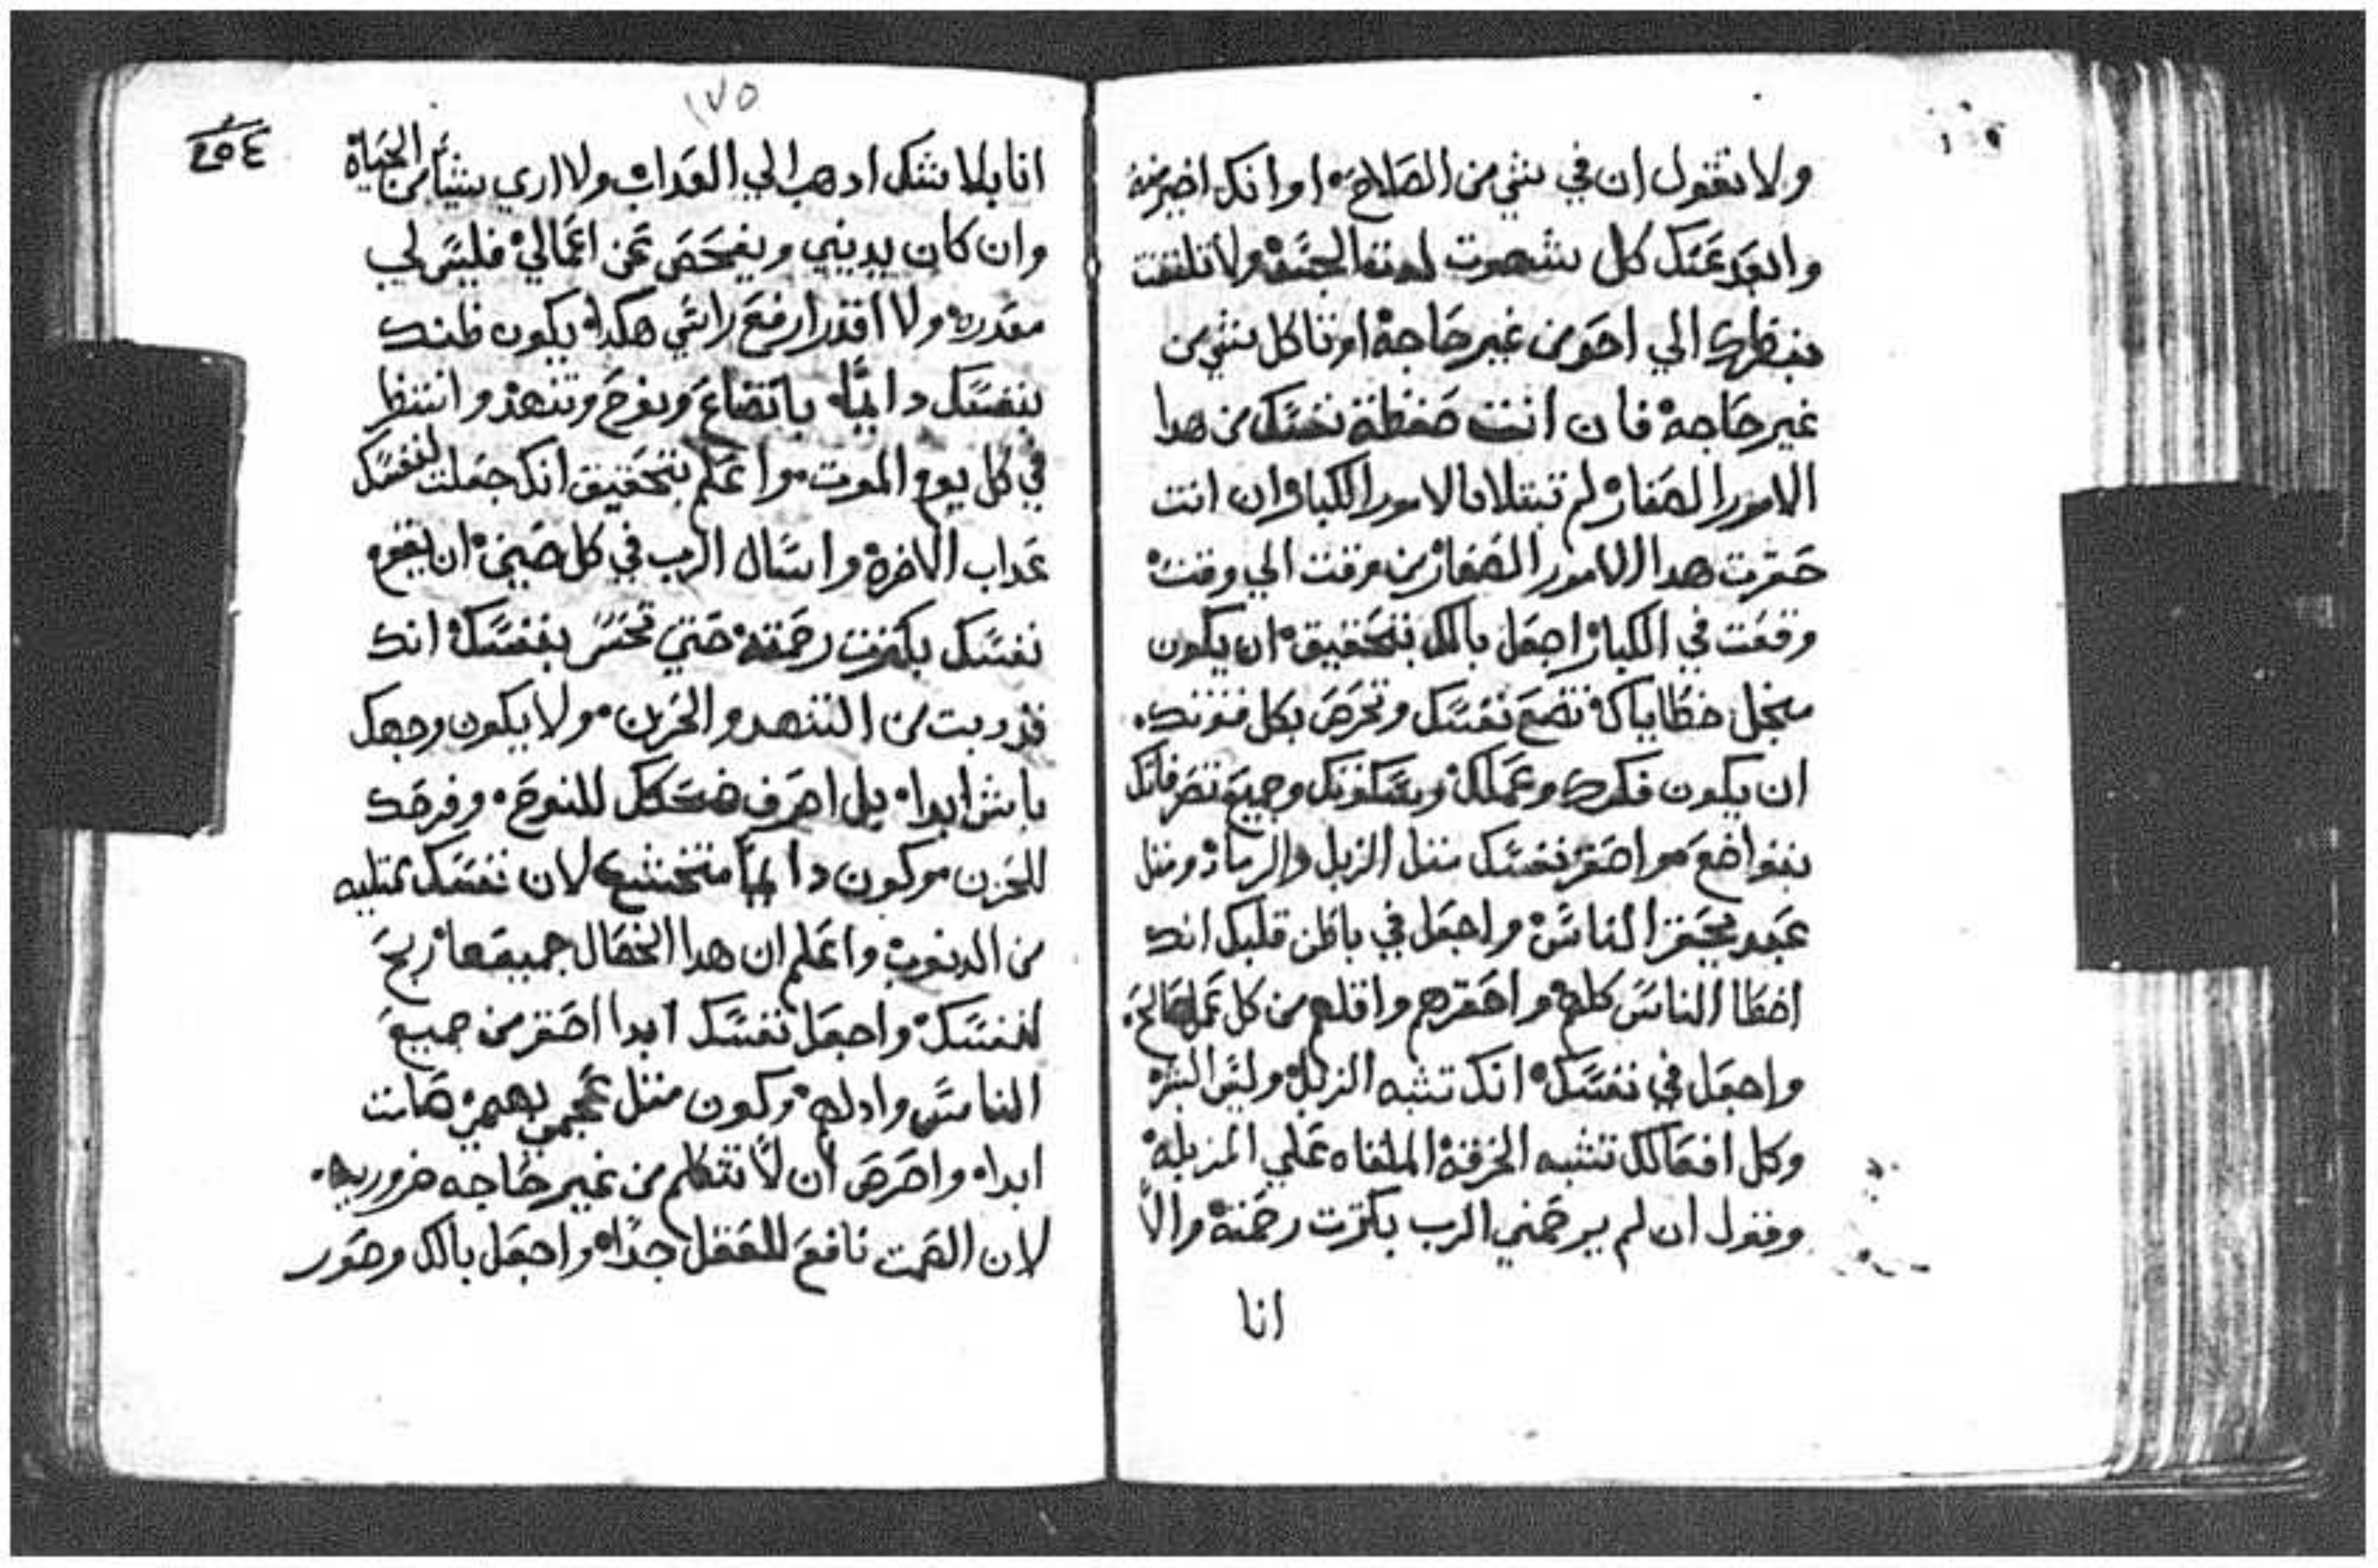 ولا تقول ان في شي من الصلاح او انك اخير منه
وابعد عنك كل شهوت لدتها الجسد ولا تلتفت
بنظرك الي احد من غير حاجة او تاكل شي من
غير حاجه فان انت حفظة نفسك من هدا
الامور الصغار لم تبتلا بالامور الكبار وان انت
حقرت هدا الامور الصغار من وقت الي وقت
وقعت في الكبار اجعل بالك بتحقيق ان يكون
سجل خطاياك تضع نفسك وتحرص بكل قوتك
ان يكون فكرك وعملك وسكوتك وجميع تصرفاتك
بتواضع واحقر نفسك متل الزبل والرماد ومتل
عبد يحقر الناس واجعل في باطن قلبك انك
اخطا الناس كلهم واحقرهم واقلهم من كل عمل صالح
واجعل في نفسك انك تشبه الزبل وليس البشر
وكل افعالك تشبه الخرقة الملقاه علي المزبلة
وقول ان لم يرحمني الرب بكترت رحمتة والا
انا
١٧٥
انا بلا شك ادهب الي العداب ولا اري شيا من الحياة
وان كان يديني ويفحص عن اعمالي فليس لي
مقدره ولا اقدر ارفع راسي هكدا يكون ظنك
بنفسك دايما باتضاع ونوح وتنهد وانتظر
في كل يوم الموت واعلم بتحقيق انك جعلت لنفسك
عداب الاخرة واسال الرب في كل حين ان يقوم
نفسك بكترت رحمته حتي تحس بنفسك انك
قد دبت من التنهد والحزن ولا يكون وجهك
باش ابدا بل اصرف ضحكك للنوح وفرحك
للحزن وكون دايما متخشع لان نفسك ممتليه
من الدنوب واعلم ان هدا الخصال جميعها ربح
لنفسك واجعل نفسك ابدا احقر من جميع
الناس وادلهم وكون متل عجمي بهيم صامت
ابدا واحرص ان لا تتكلم من غير حاجه ضروريه
لان الصمت نافع للعقل جدا واجعل بالك وصور